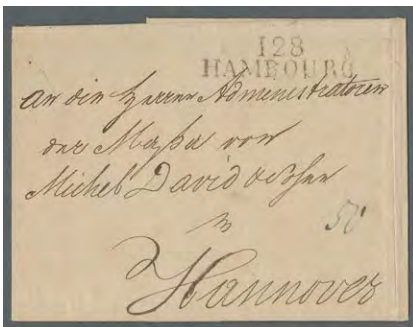 128
HAMBOURG
An die Herren Administratoren
der Massa von
Michel David
in
50
Hannover